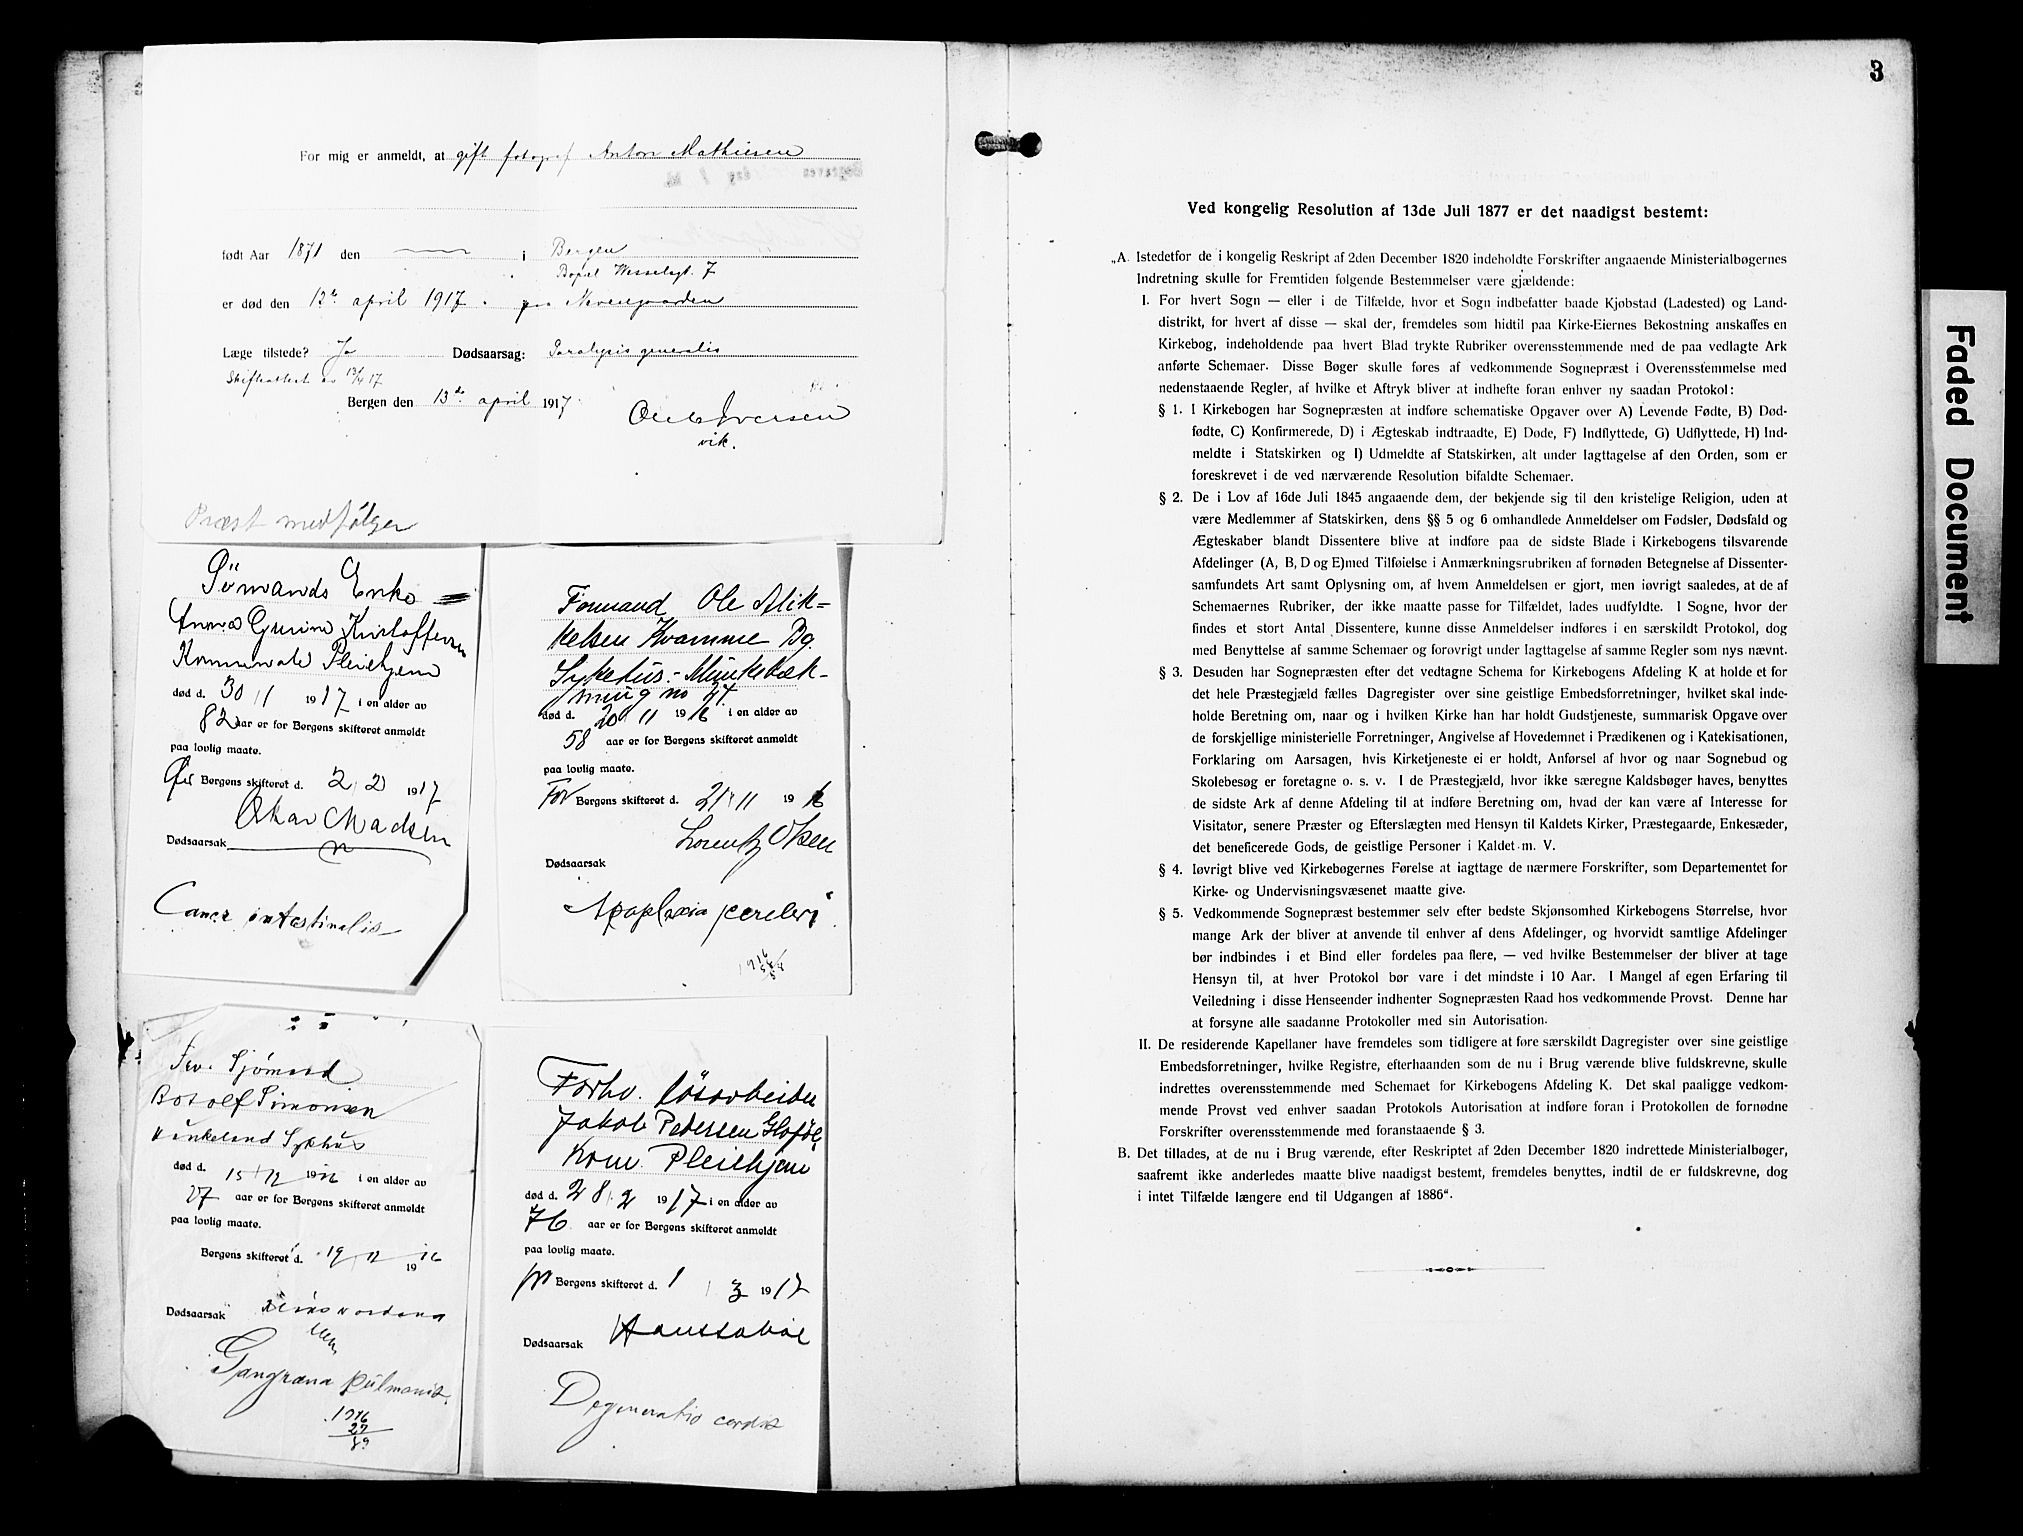 For mig er anmeldt, at gift fotograf Anton Mathiesen
født Aar 1871 den i Bergen
Bopæl Wesselsgt. 7
er død den 12te april 1917. paa Neevengaarden
Læge tilstede? Ja Dødsaarsag: Paralysis generalis
Skifteattest av 13/4 17
Bergen den 13de april 1917
Ole Iversen
vik.
Præst medfølger
Sömands Enke
Anna Gurine Kristoffersen
Kommunale Pleiehjem
død d. 30 / 1 1917 i en alder av
82 aar er for Bergens skifteret anmeldt
paa lovlig maate.
For Bergens skifteret d. 2 / 2 1917
Oskar Madsen
Dødsaarsak
Cancer intestinalis
Formand Ole Mik=
kelsen Kvamme Bg.
Sykehus.- Munkebæk-
smug no 47.
død d. 20 / 11 1916 i en alder av
58 aar er for Bergens skifteret anmeldt
paa lovlig maate.
For Bergens skifteret d. 21 / 11 1916
Lorentz Olsen
Dødsaarsak
Apoplexia cerebri
1916
58
Fev. Sjömand
Botolf Simonsen
Haukeland Sykhus
død d. 15 / 12 1916 i en alder av
27 aar er for Bergens skifteret anmeldt
paa lovlig maate.
Bergens skifteret d. 19 / 12 1916
Dødsaarsak
Gangræna pulmonis
1916
27
89
Forhv. løsarbeider
Jakob Pedersen
Kom. Pleiehjem
død d. 28 / 2 1917 i en alder av
76 aar er for Bergens skifteret anmeldt
paa lovlig maate.
for Bergens skifteret d. 1 / 3 1917
Dødsaarsak
Degeneratio cordis
3
Ved kongelig Resolution af 13de Juli 1877 er det naadigst bestemt:
„A. Istedetfor de i kongelig Reskript af 2den December 1820 indeholdte Forskrifter angaaende Ministerialbøgernes
Indretning skulle for Fremtiden følgende Bestemmelser være gjældende:
I. For hvert Sogn — eller i de Tilfælde, hvor et Sogn indbefatter baade Kjøbstad (Ladested) og Land-
distrikt, for hvert af disse — skal der, fremdeles som hidtil paa Kirke-Eiernes Bekostning anskaffes en
Kirkebog, indeholdende paa hvert Blad trykte Rubriker overensstemmende med de paa vedlagte Ark
anførte Schemaer. Disse Bøger skulle føres af vedkommende Sognepræst i Overensstemmelse med
nedenstaaende Regler, af hvilke et Aftryk bliver at indhefte foran enhver ny saadan Protokol:
§ 1. I Kirkebogen har Sognepræsten at indføre schematiske Opgaver over A) Levende Fødte, B) Død-
fødte, C) Konfirmerede, D) i Ægteskab indtraadte, E) Døde, F) Indflyttede, G) Udflyttede, H) Ind-
meldte i Statskirken og I) Udmeldte af Statskirken, alt under Iagttagelse af den Orden, som er
foreskrevet i de ved nærværende Resolution bifaldte Schemaer.
§ 2. De i Lov af 16de Juli 1845 angaaende dem, der bekjende sig til den kristelige Religion, uden at
være Medlemmer af Statskirken, dens §§ 5 og 6 omhandlede Anmeldelser om Fødsler, Dødsfald og
Ægteskaber blandt Dissentere blive at indføre paa de sidste Blade i Kirkebogens tilsvarende
Afdelinger (A, B, D og E) med Tilføielse i Anmærkningsrubriken af fornøden Betegnelse af Dissenter-
samfundets Art samt Oplysning om, af hvem Anmeldelsen er gjort, men iøvrigt saaledes, at de af
Schemaernes Rubriker, der ikke maatte passe for Tilfældet, lades uudfyldte. I Sogne, hvor der
findes et stort Antal Dissentere, kunne disse Anmeldelser indføres i en særskildt Protokol, dog
med Benyttelse af samme Schemaer og forøvrigt under Iagttagelse af samme Regler som nys nævnt.
§ 3. Desuden har Sognepræsten efter det vedtagne Schema for Kirkebogens Afdeling K at holde et for
det hele Præstegjæld fælles Dagregister over sine geistlige Embedsforretninger, hvilket skal inde-
holde Beretning om, naar og i hvilken Kirke han har holdt Gudstjeneste, summarisk Opgave over
de forskjellige ministerielle Forretninger, Angivelse af Hovedemnet i Prædikenen og i Katekisationen,
Forklaring om Aarsagen, hvis Kirketjeneste ei er holdt, Anførsel af hvor og naar Sognebud og
Skolebesøg er foretagne o. s. v. I de Præstegjæld, hvor ikke særegne Kaldsbøger haves, benyttes
de sidste Ark af denne Afdeling til at indføre Beretning om, hvad der kan være af Interesse for
Visitatur, senere Præster og Efterslægten med Hensyn til Kaldets Kirker, Præstegaarde, Enkesæder,
det beneficerede Gods, de geistlige Personer i Kaldet m. V.
§ 4. Iøvrigt blive ved Kirkebøgernes Førelse at iagttage de nærmere Forskrifter, som Departementet for
Kirke- og Undervisningsvæsenet maatte give.
§ 5. Vedkommende Sognepræst bestemmer selv efter bedste Skjønsomhed Kirkebogens Størrelse, hvor
mange Ark der bliver at anvende til enhver af dens Afdelinger, og hvorvidt samtlige Afdelinger
bør indbindes i et Bind eller fordeles paa flere, — ved hvilke Bestemmelser der bliver at tage
Hensyn til, at hver Protokol bør vare i det mindste i 10 Aar. I Mangel af egen Erfaring til
Veiledning i disse Henseender indhenter Sognepræsten Raad hos vedkommende Provst. Denne har
at forsyne alle saadanne Protokoller med sin Autorisation.
II. De residerende Kapellaner have fremdeles som tidligere at føre særskildt Dagregister over sine geistlige
Embedsforretninger, hvilke Registre, efterhaanden som de nu i Brug værende blive fuldskrevne, skulle
indrettes overensstemmende med Schemaet for Kirkebogens Afdeling K. Det skal paaligge vedkom-
mende Provst ved enhver saadan Protokols Autorisation at indføre foran i Protokollen de fornødne
Forskrifter overensstemmende med foranstaaende § 3.
B. Det tillades, at de nu i Brug værende, efter Reskriptet af 2den December 1820 indrettede Ministerialbøger,
saafremt ikke anderledes maatte blive naadigst bestemt, fremdeles benyttes, indtil de er fuldskrevne, dog
i intet Tilfælde længere end til Udgangen af 1886“.
Faded Document